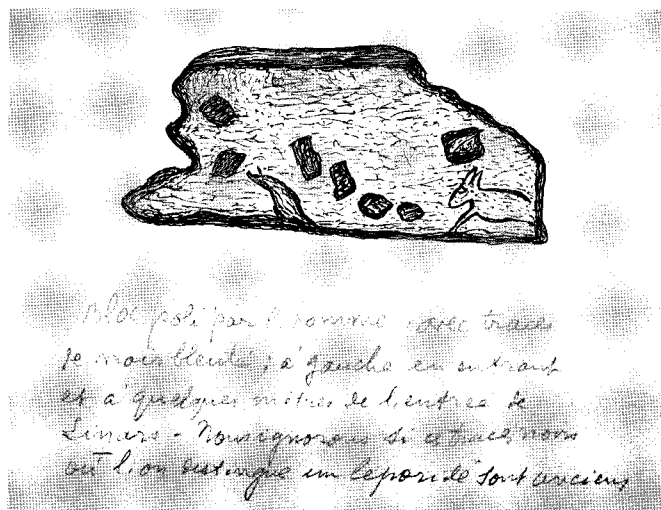 Bloc poli par l'homme avec traces
; à gauche en entrant
et à quelques mètres de l'entrée de
Linars - Nous ignorons si ces traces, noirs
où l'on distingue un léporidé sont anciens